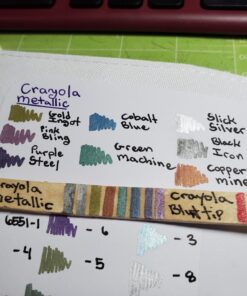 Crayola
metallic
Gold
Ingot
Cobalt
Blue
Slick
Silver
Pink
Bling
Black
Iron
Purple
Steel
Green
machine
Copper
mine
Crayola
metallic
Crayola
Blu tip
6551-1
-6
-3
-4
-5
-8